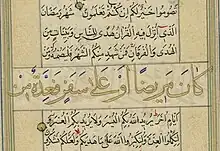 تَصُومُوا خَيْرٌ لَكُمْ إِنْ كُنْتُمْ تَعْلَمُونَ شَهْرُ رَمَضَانَ
الَّذِي أُنْزِلَ فِيهِ الْقُرْآنُ هُدًى لِلنَّاسِ وَبَيِّنَاتٍ مِنَ
الْهُدَى وَالْفُرْقَانِ فَمَنْ شَهِدَ مِنْكُمُ الشَّهْرَ فَلْيَصُمْهُ وَمَنْ
كَانَ مَرِيضًا أَوْ عَلَى سَفَرٍ فَعِدَّةٌ مِنْ
أَيَّامٍ أُخَرَ يُرِيدُ اللَّهُ بِكُمُ الْيُسْرَ وَلَا يُرِيدُ بِكُمُ الْعُسْرَ
وَلِتُكْمِلُوا الْعِدَّةَ وَلِتُكَبِّرُوا اللَّهَ عَلَى مَا هَدَيكُمْ وَلَعَلَّكُمْ تَشْكُرُونَ